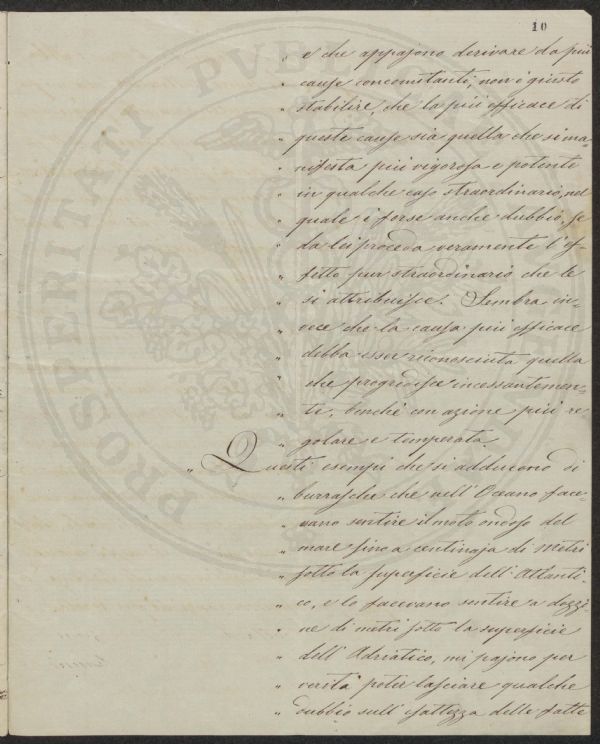 10
„ e che appajono derivare da più
„ cause concomitanti, non è giusto
„ stabilire, che la più efficace di
„ queste cause sia quella che si ma-
„ nifesta più vigorosa e potente
„ in qualche caso straordinario, nel
„ quale è forse anche dubbio, se
„ da lei proceda veramente l'ef-
„ fetto pur straordinario che le
„ si attribuisce. Sembra in-
„ vece che la causa più efficace
„ debba esser riconosciuta quella
„ che progredisce incessantemen-
„ te, benché con azione più re
„ golare e temperata.
„ Questi esempi che si adducono di
„ burrasche che nell'Oceano face-
„ vano sentire il moto ondoso del
„ mare fino a centinaja di metri
„ sotto la superficie dell'Atlanti-
„ co, e lo facevano sentire a dozzi
„ ne di metri sotto la superficie
„ dell'Adriatico, mi pajono per
„ verità poter lasciare qualche
„ dubbio sull'esattezza delle fatte
PROSPERITATI PVBL